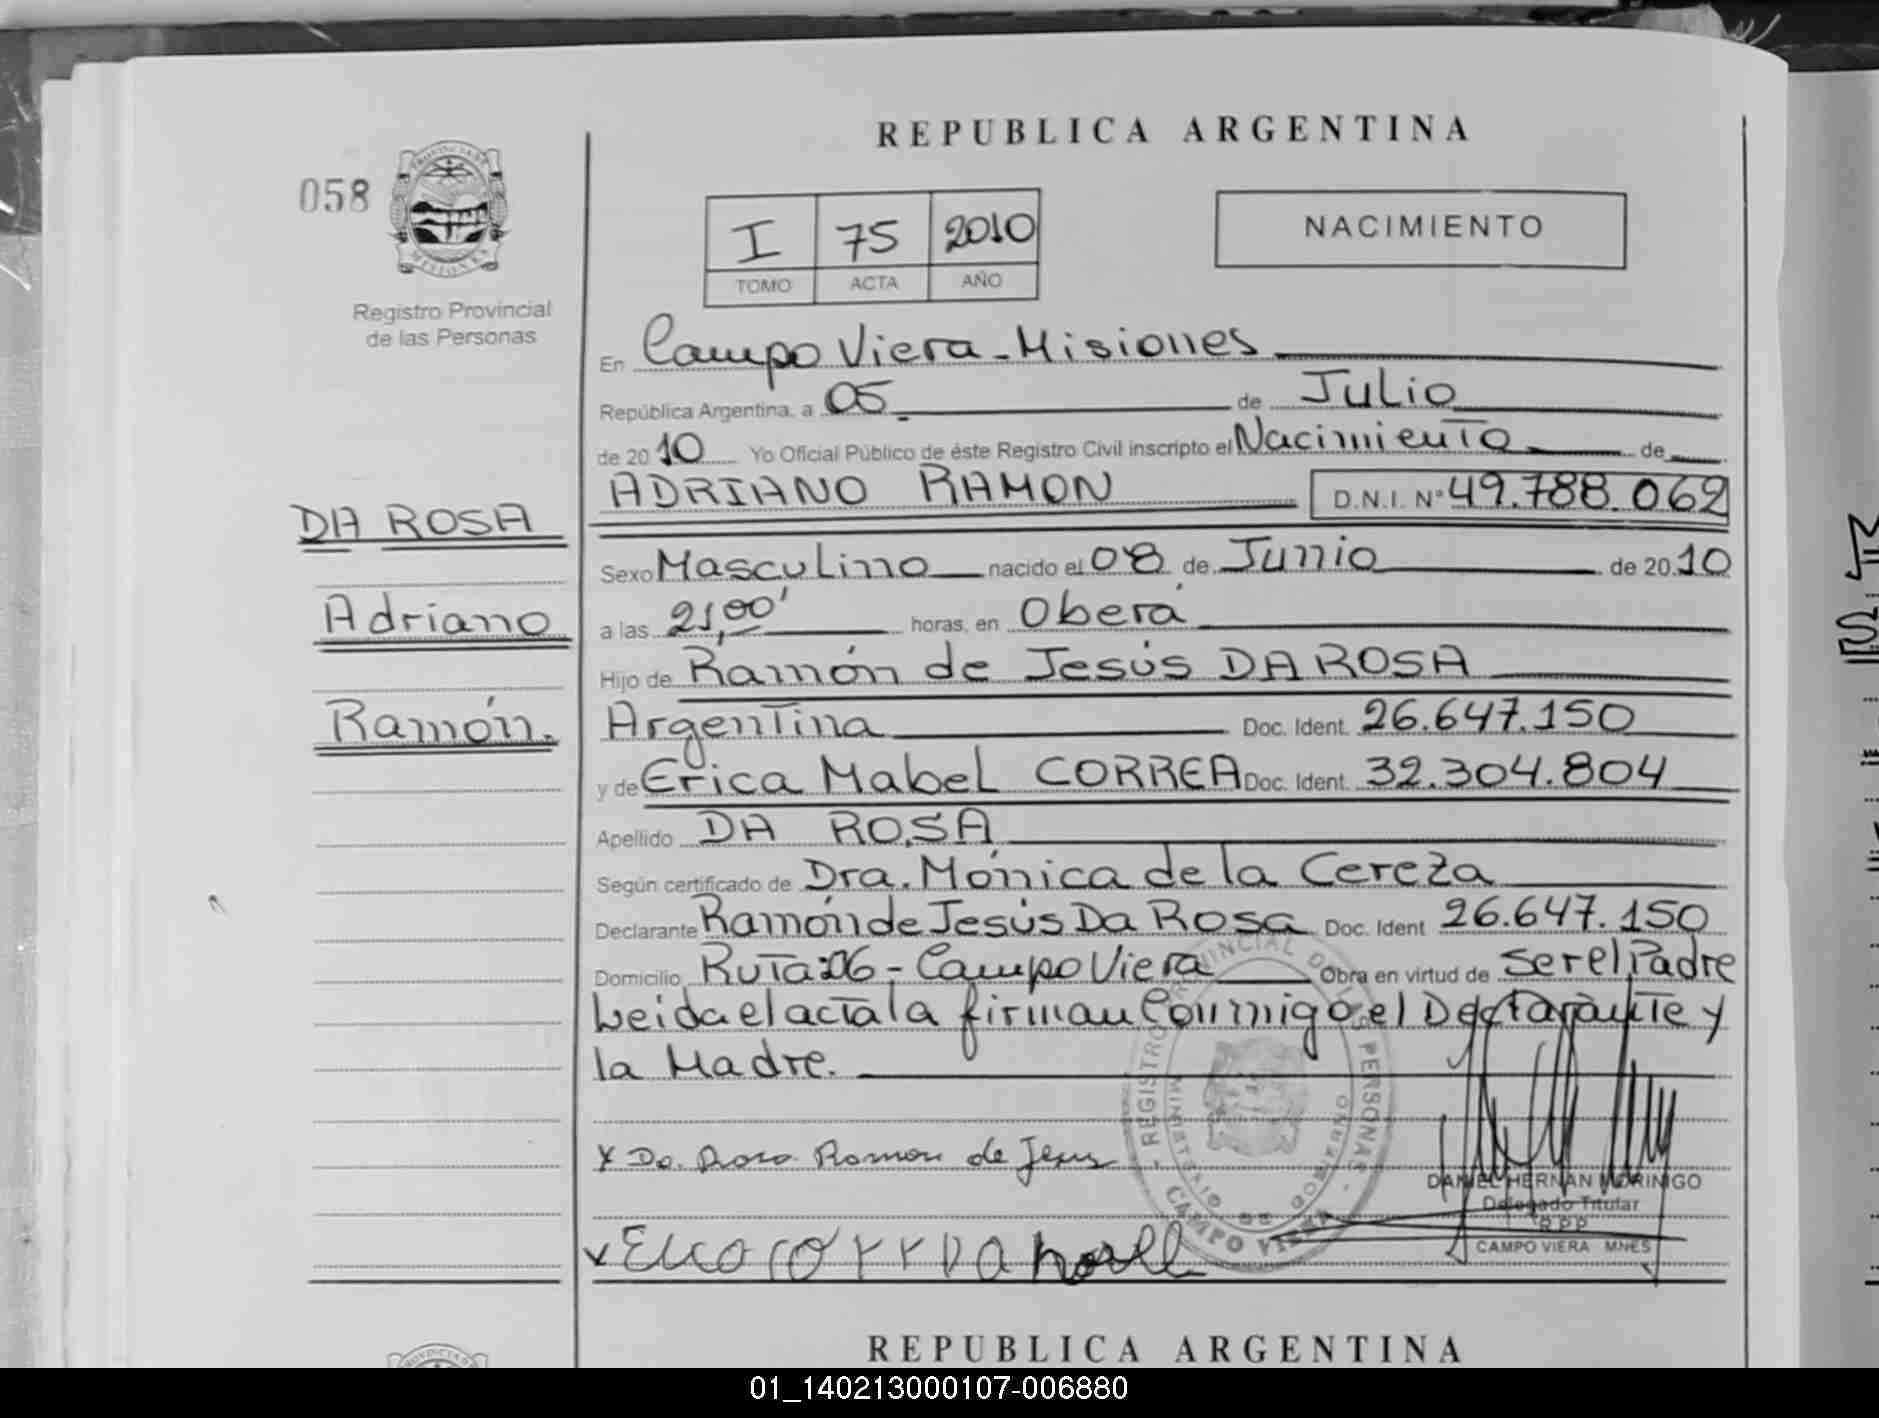 REPUBLICA ARGENTINA
058
PROVINCIA DE
MISIONES
Registro Provincial
de las Personas
I 75 2010
TOMO ACTA AÑO
NACIMIENTO
En Campo Viera - Misiones
República Argentina, a 05 de Julio
de 2010 Yo Oficial Público de éste Registro Civil inscripto el Nacimiento de
ADRIANO RAMON D.N.I. N° 49.788.062
DA ROSA
Adriano
Ramón.
Sexo Masculino nacido el 08 de Junio de 2010
a las 21,00' horas, en Oberá
Hijo de Ramón de Jesús DA ROSA
Argentina Doc. Ident. 26.647.150
y de Erica Mabel CORREA Doc. Ident. 32.304.804
Apellido DA ROSA
Según certificado de Dra. Mónica de la Cereza
Declarante Ramón de Jesús Da Rosa Doc. Ident 26.647.150
Domicilio Ruta:06 - Campo Viera Obra en virtud de ser el Padre
Leida el acta la firman Conmigo el Declarante y
la Madre.
x Da Rosa Ramon de Jesus
REGISTRO PROVINCIAL DE LAS PERSONAS
MINISTERIO DE GOBIERNO
CAMPO VIERA
DANIEL HERNAN MORINIGO
Delegado Titular
R.P.P.
CAMPO VIERA MNES
REPUBLICA ARGENTINA
01_140213000107-006880